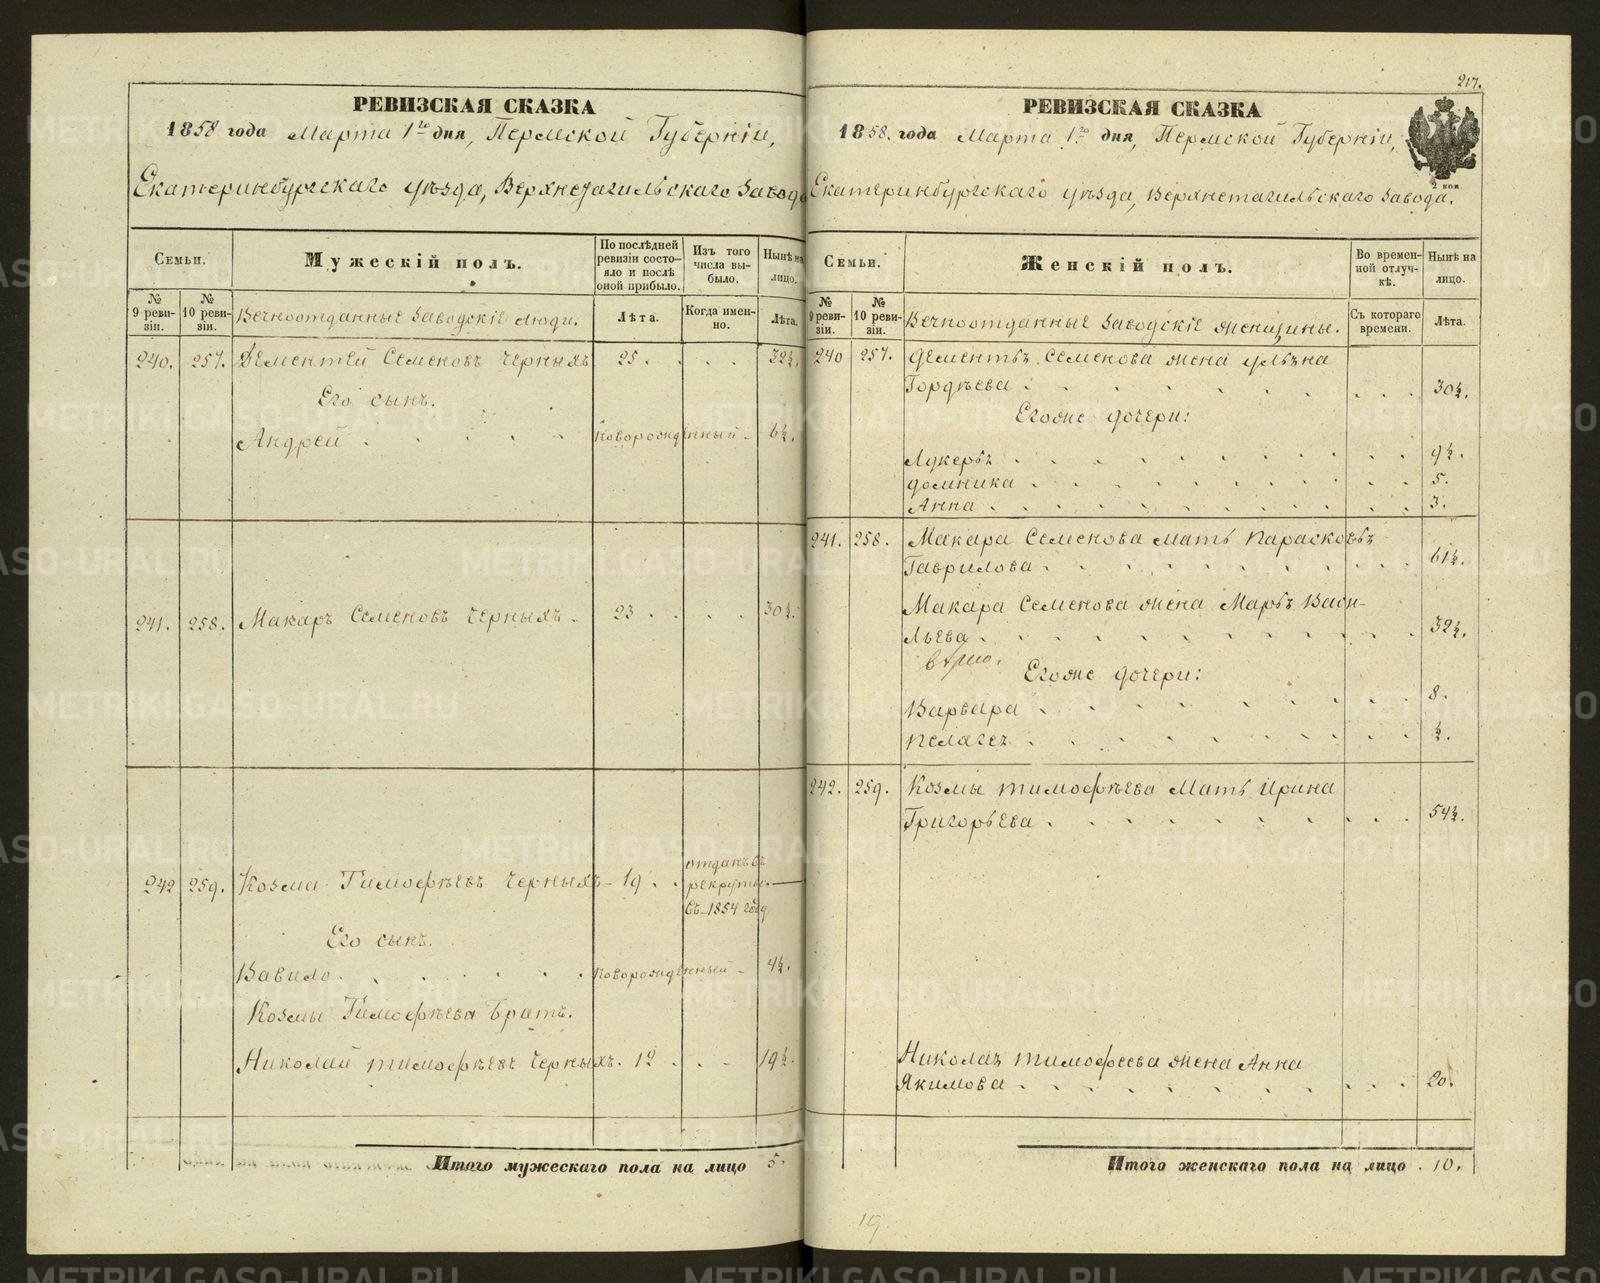 РЕВИЗСКАЯ СКАЗКА
1858 года Марта 1го дня, Пермской Губерніи,
Екатеринбургскаго уѣзда, Верхнетагильскаго Завода
Семьи.
Мужескій полъ.
По послѣдней ревизіи состояло и послѣ оной прибыло.
Изъ того числа выбыло.
Нынѣ на лицо.
№ 9 ревизіи.
№ 10 ревизіи.
Вечноотданные Заводскіе люди.
Лѣта.
Когда именно.
Лѣта.
240. 257. Дементей Семеновъ Черныхъ 25. 32½.
Его сынъ.
Андрей новорожденный 6½.
241. 258. Макаръ Семеновъ Черныхъ. 23 30½.
242 259. Козма Тимофѣевъ Черныхъ 19. отданъ въ
рекруты
въ 1854 году
Его сынъ.
Вавило новорожденный 4½.
Козмы Тимофѣева братъ.
Николай Тимофѣевъ Черныхъ. 12 19½.
Итого мужескаго пола на лицо 5.
217.
РЕВИЗСКАЯ СКАЗКА
1858. года Марта 1го дня, Пермской Губерніи,
2 коп.
Екатеринбургскаго уѣзда, Верхнетагильскаго Завода.
Семьи.
Женскій полъ.
Во временной отлучкѣ.
Нынѣ на лицо.
№ 9 ревизіи.
№ 10 ревизіи.
Вечноотданные Заводскіе женщины.
Съ котораго времени.
Лѣта.
240 257. Дементья Семенова жена Ульяна
Гордѣева 30½.
Егоже дочери:
Лукерья 9½.
Домника 5.
Анна 3.
241. 258. Макара Семенова мать Парасковья
Гаврилова 61½.
Макара Семенова жена Марья Васи-
льева 32½.
Егоже дочери:
Варвара 8.
Пелагея ½.
242. 259. Козмы Тимофѣева Мать Ирина
Григорьева 54½.
Николая Тимофеева жена Анна
Якимова 20.
Итого женскаго пола на лицо 10.
METRIKI.GASO-URAL.RU